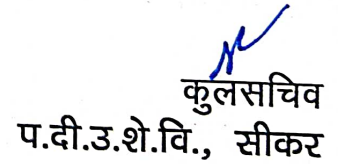 कुलसचिव
प.दी.उ.शे.वि., सीकर